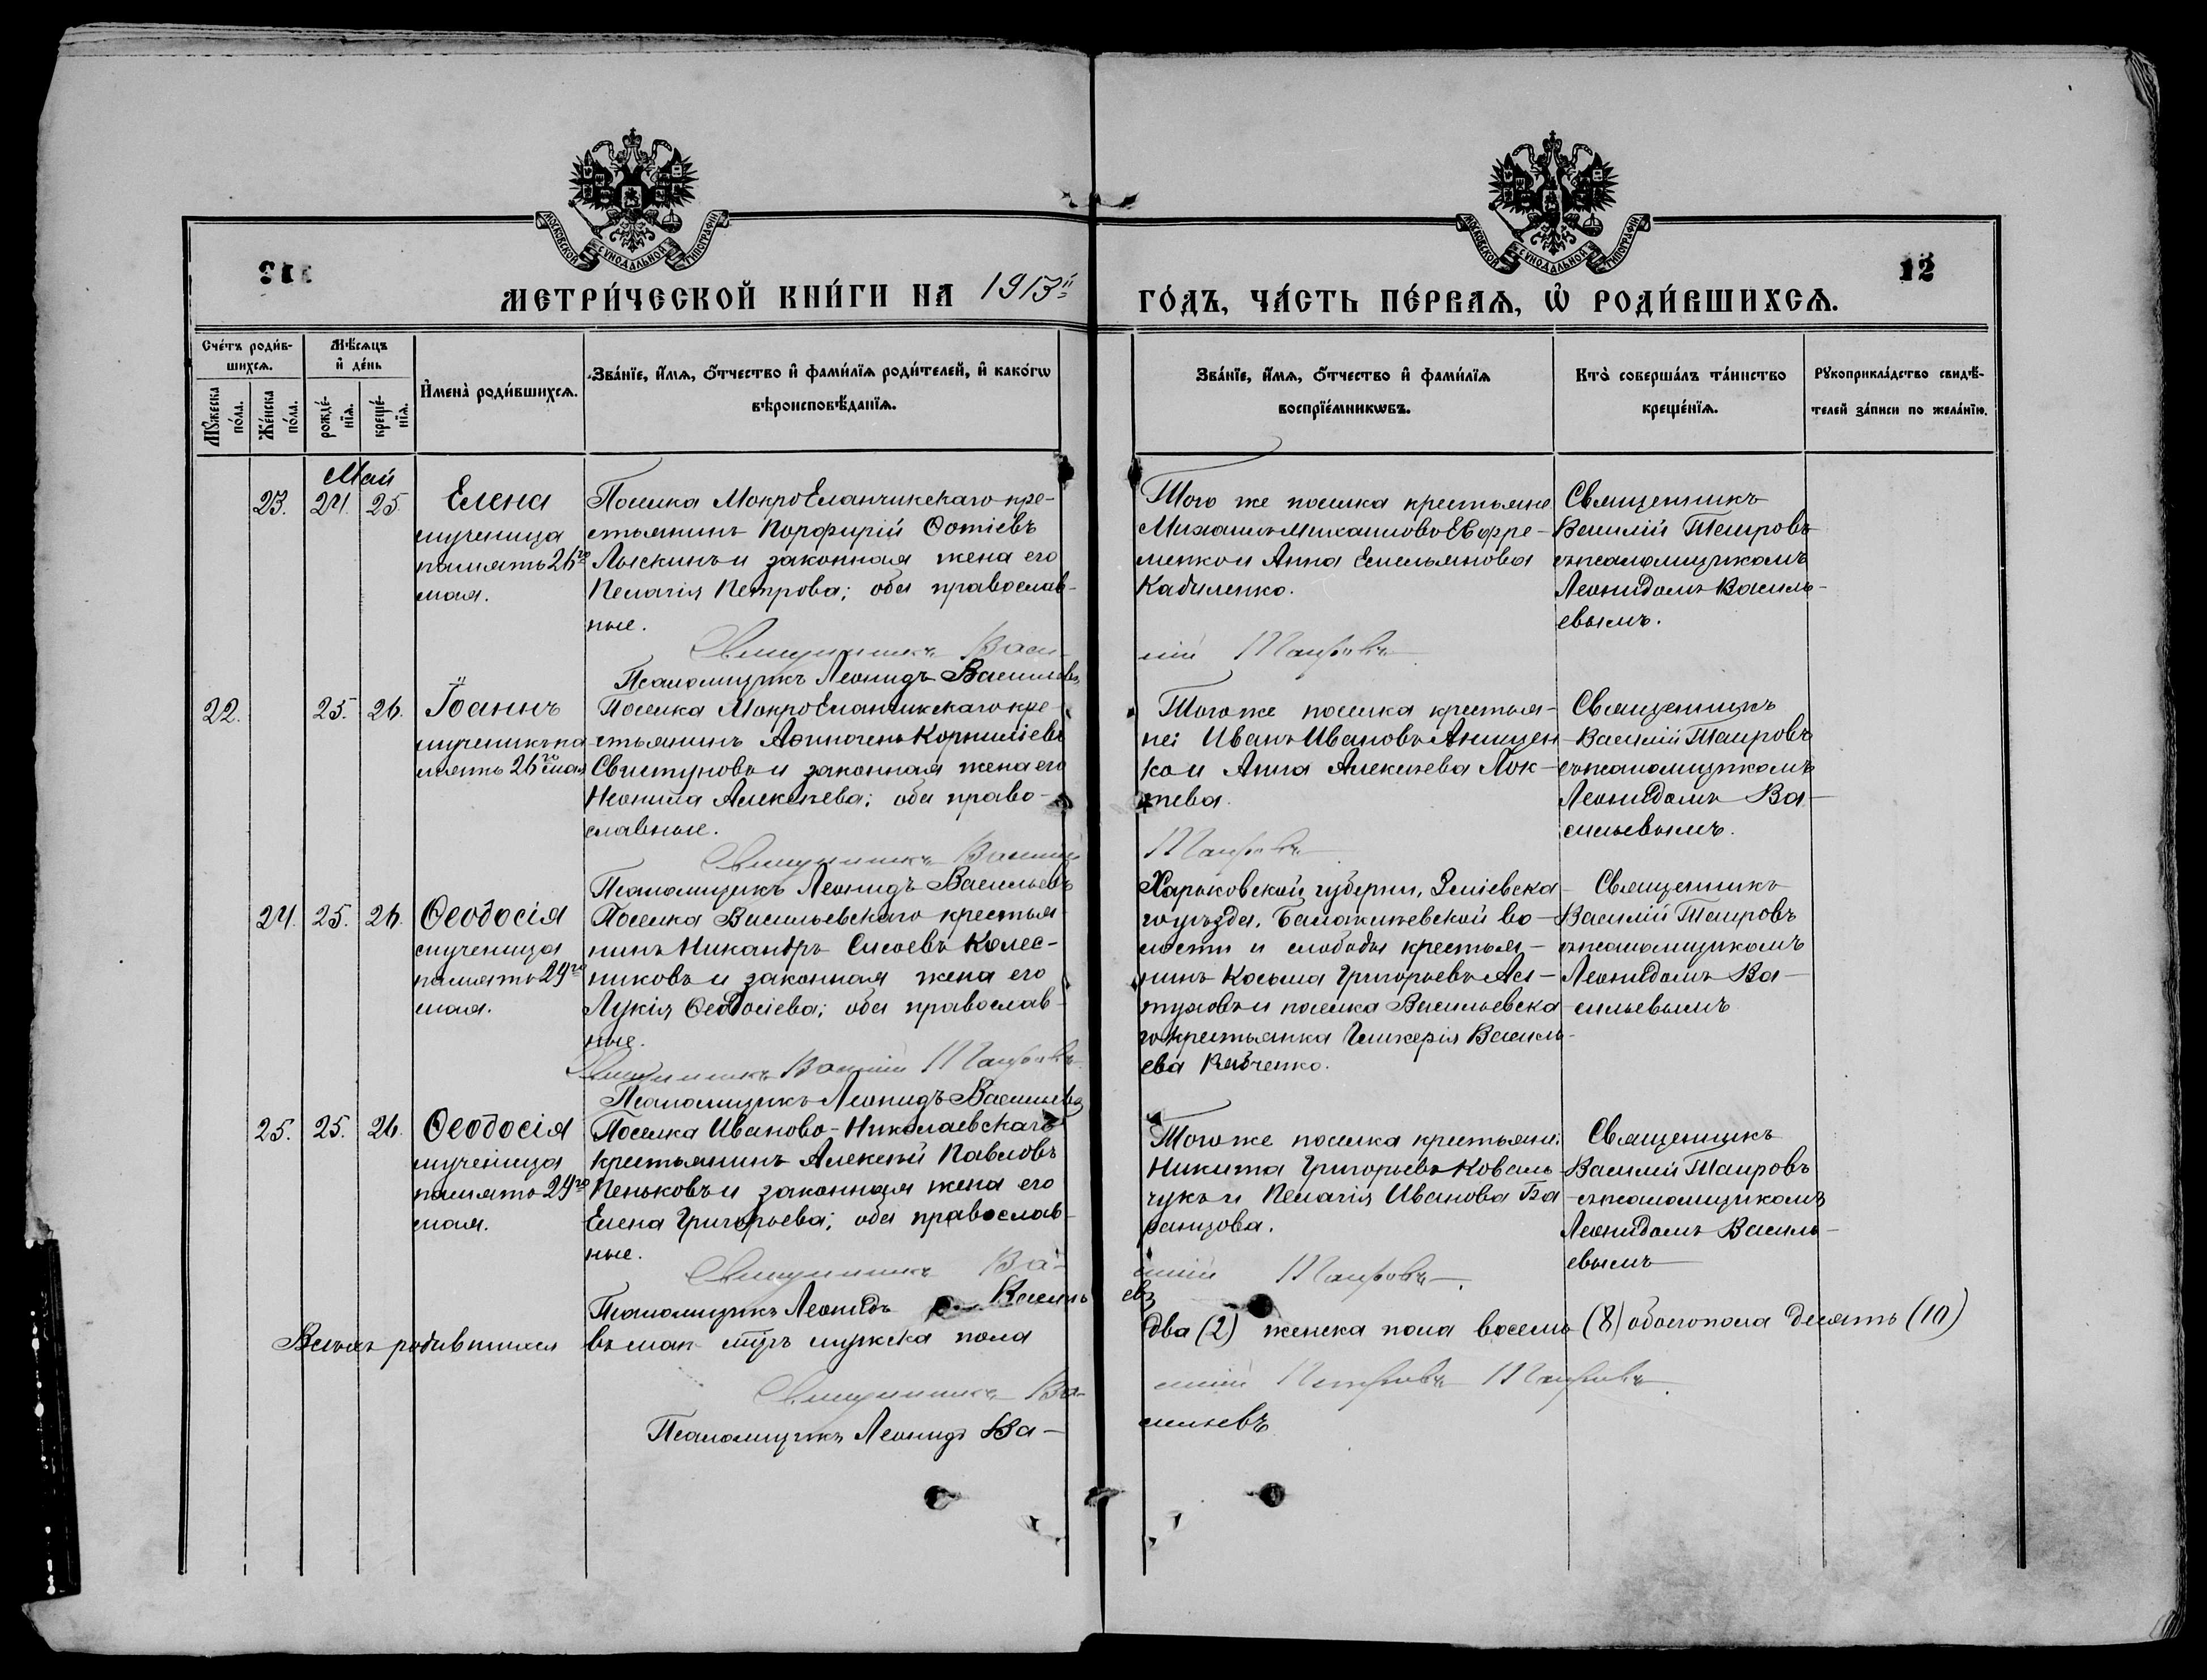 МОСКОВСКОЙ СУНОДАЛЬНОЙ ТИПОГРАФІИ
МОСКОВСКОЙ СУНОДАЛЬНОЙ ТИПОГРАФІИ
12
МЕТРИ́ЧЕСКОЙ КНИ́ГИ НА 1913й ГО́ДЪ, ЧА́СТЬ ПЕ́РВАѦ, Ѡ҆ РОДИ́ВШИХСѦ.
Сче́тъ роди́в-
шихсѧ.
Мꙋ́жеска по́ла.
Же́нска по́ла.
Мѣ́сѧцъ
и҆ де́нь
рожде́-
нїѧ.
креще́-
нїѧ.
И҆мена̀ роди́вшихсѧ.
Зва́нїе, и҆́мѧ, ѻ҆́тчество и҆ фами́лїѧ роди́телей, и҆ како́гѡ
вѣроисповѣ́данїѧ.
Зва́нїе, и҆́мѧ, ѻ҆́тчество и҆ фами́лїѧ
воспрїе́мникѡвъ.
Кто̀ соверша́лъ та́инство
креще́нїѧ.
Рꙋкоприкла́дство свидѣ́-
телей за́писи по жела́нїю.
Май
23. 24. 25. Елена
мученица
память 26го
мая.
Поселка МокроЕланчикскаго кре-
стьянинъ Порфирій Ѳотіевъ
Лыскинъ и законная жена его
Пелагія Петрова; оба православ-
ные.
Священникъ Васи-
Псаломщикъ Леонидъ Васильевъ
Того же поселка крестьяне
Михаилъ Михаиловъ Евфре-
менко и Анна Емельянова
Кабиленко.
лій Таировъ
Священникъ
Василій Таировъ
съ псаломщикомъ
Леонидомъ Василь-
евымъ.
22. 25. 26. Іоаннъ
мученикъ па-
мять 26го мая
Поселка МокроЕланчикскаго кре-
стьянинъ Аѳиногенъ Корниліевъ
Свистуновъ и законная жена его
Неонила Алексѣева; оба право-
славные.
Священникъ Василій
Псаломщикъ Леонидъ Васильевъ
Того же поселка крестья-
не: Иванъ Ивановъ Анищен
ко и Анна Алексѣева Лок-
тева.
Таировъ
Священникъ
Василій Таировъ
съ псаломщикомъ
Леонидомъ Ва-
сильевымъ.
24. 25. 26. Ѳеодосія
мученица
память 29го
мая.
Поселка Васильевскаго крестья-
нинъ Никандръ Сысоевъ Колес-
никовъ и законная жена его
Лукія Ѳеодосіева; оба православ-
ные.
Священникъ Василій Таировъ
Псаломщикъ Леонидъ Васильевъ
Харьковской губерніи, Зміевска-
го уѣзда, Балаклѣевской во-
лости и слободы крестья-
нинъ Косьма Григорьевъ
и поселка Васильевска
го крестьянка Гликерія Василь-
ева
Священникъ
Василій Таировъ
съ псаломщикомъ
Леонидомъ Ва-
сильевымъ
25. 25. 26. Ѳеодосія
мученица
память 29го
мая.
Поселка Иваново-Николаевскаго
крестьянинъ Алексѣй Павловъ
Пеньковъ и законная жена его
Елена Григорьева; оба православ-
ные.
Священникъ Ва-
Псаломщикъ Леонидъ Василь
Того же поселка крестьяне:
Никита Григорьевъ Коваль
чукъ и Пелагія Иванова Ба
ранцова.
силій Таировъ.
евъ
Священникъ
Василій Таировъ
съ псаломщикомъ
Леонидомъ Василь-
евымъ
Всѣхъ родившихся въ маѣ м-цѣ мужска пола два (2) женска пола восемь (8) обоего пола десять (10)
Священникъ Ва-
силій Таировъ.
Псаломщикъ Леонидъ Ва-
сильевъ